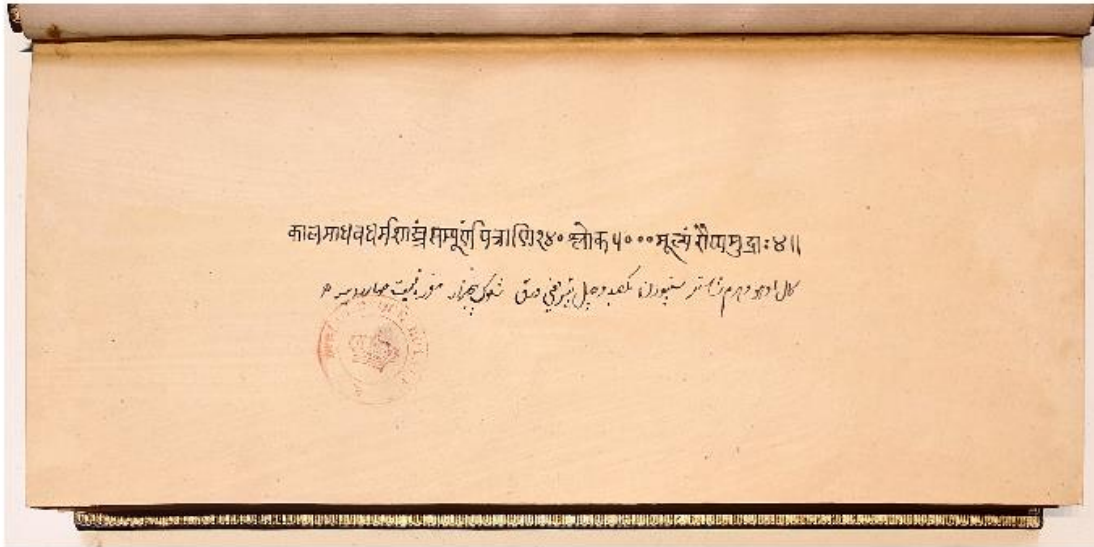 कालमाधवधर्मशास्त्रंसम्पूर्णपत्राणि१४० श्लोक५०००मूल्यंरौप्यमुद्राः४॥
کال مادهو دهرم شاستر سنپورن یکصد و چهل پتر یعنی ورق شلوک پنجهزار